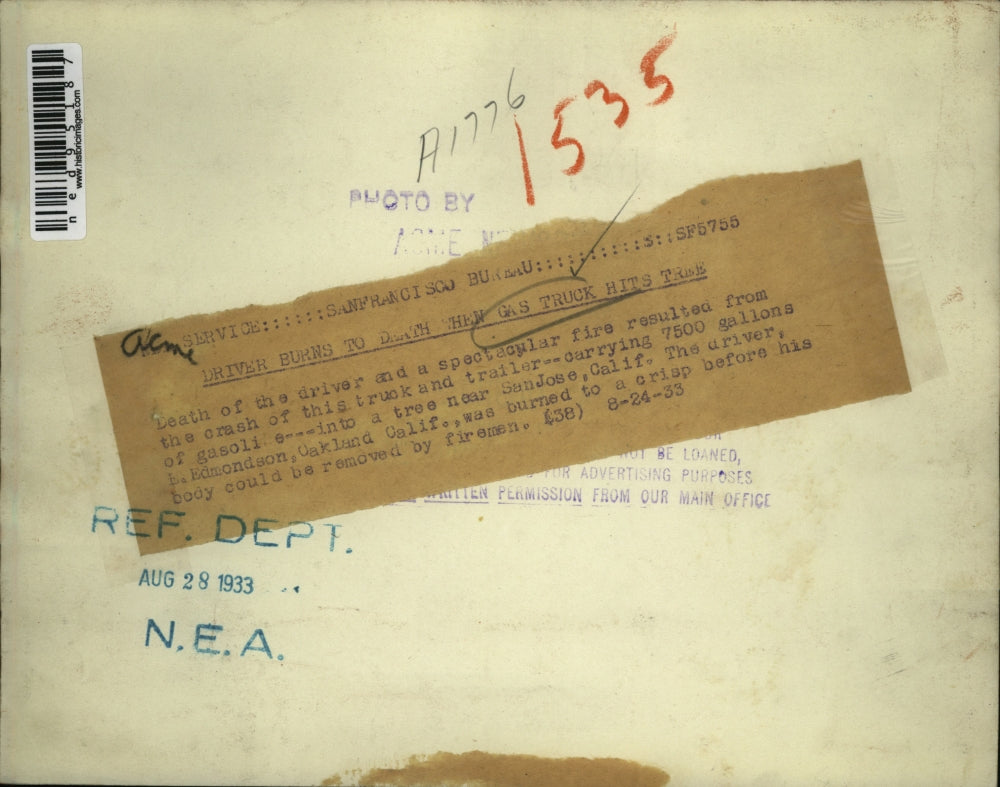 ned95187
www.historicimages.com
A1776
1535
PHOTO BY
ACME
acme
SERVICE::::::SANFRANCISCO BUREAU::::::::::S::SF5755
DRIVER BURNS TO DEATH WHEN GAS TRUCK HITS TREE
Death of the driver and a spectacular fire resulted from
the crash of this truck and trailer--carrying 7500 gallons
of gasoli e---into a tree near SanJose,Calif. The driver,
Edmondson,Oakland Calif.,was burned to a crisp before his
body could be removed by firemen. (38) 8-24-33
NOT BE LOANED,
FOR ADVERTISING PURPOSES
WRITTEN PERMISSION FROM OUR MAIN OFFICE
REF. DEPT.
AUG 28 1933
N.E.A.